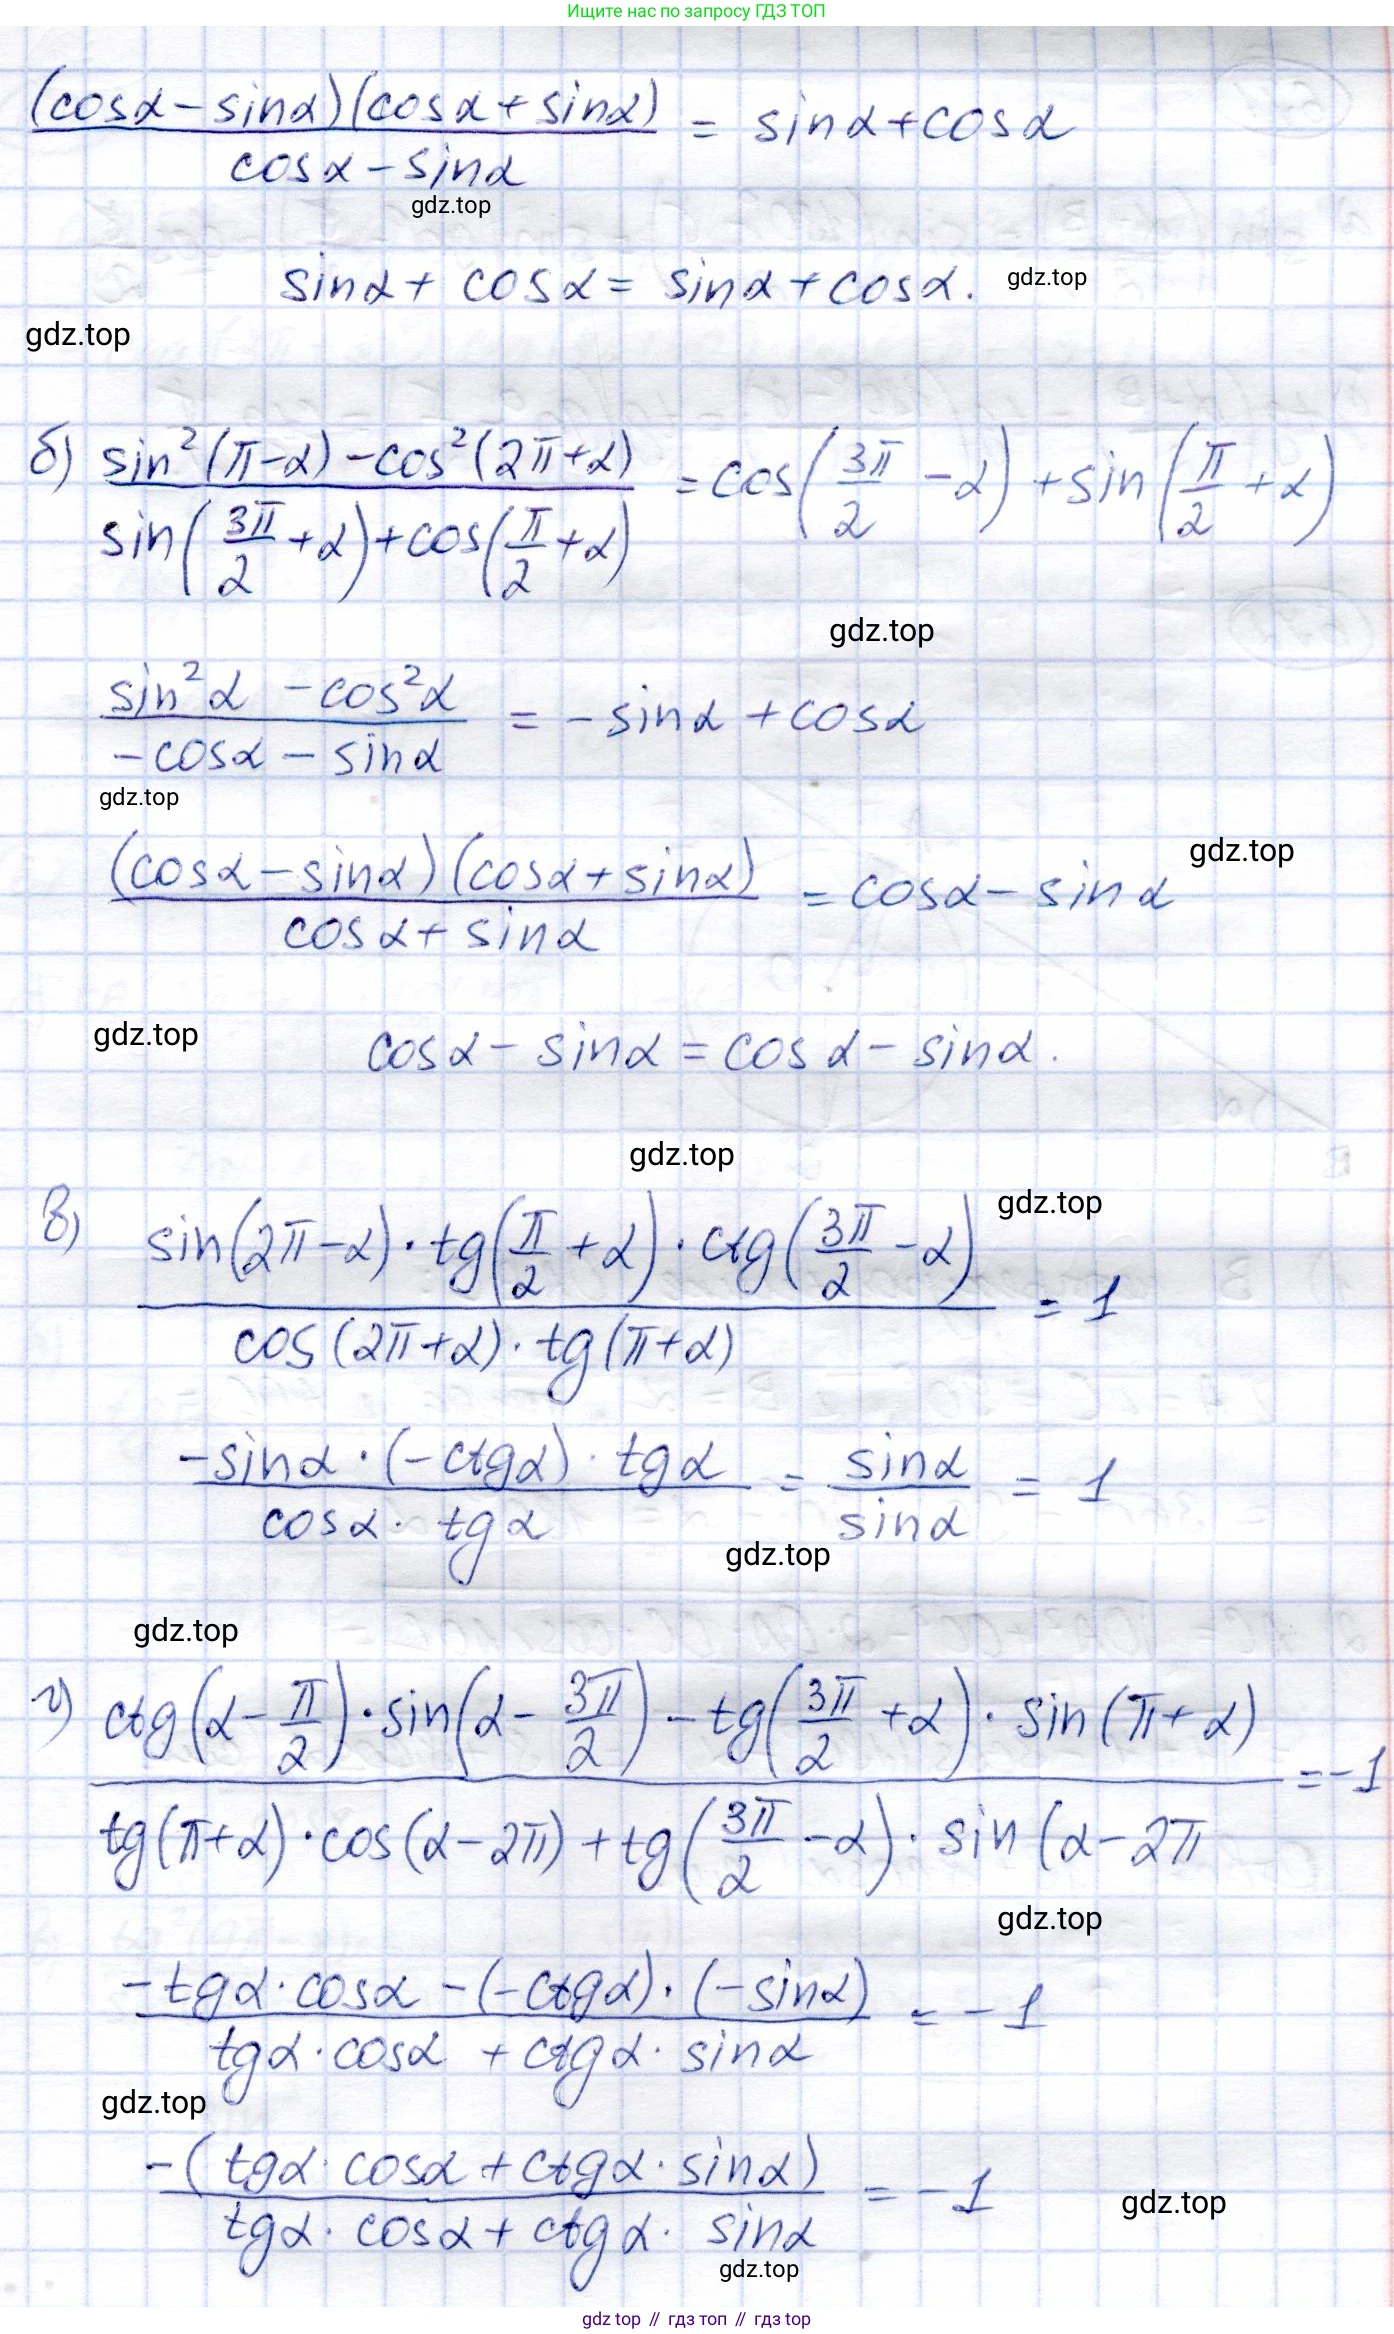 Ищите нас по запросу ГДЗ ТОП
(cosα - sinα)(cosα + sinα) / (cosα - sinα) = sinα + cosα
gdz.top
sinα + cosα = sinα + cosα.
gdz.top
gdz.top
б) (sin²(π-α) - cos²(2π+α)) / (sin(3π/2 + α) + cos(π/2 + α)) = cos(3π/2 - α) + sin(π/2 + α)
gdz.top
(sin²α - cos²α) / (-cosα - sinα) = -sinα + cosα
gdz.top
(cosα - sinα)(cosα + sinα) / (cosα + sinα) = cosα - sinα
gdz.top
gdz.top
cosα - sinα = cosα - sinα.
gdz.top
gdz.top
в) (sin(2π-α) · tg(π/2 + α) · ctg(3π/2 - α)) / (cos(2π+α) · tg(π+α)) = 1
(-sinα · (-ctgα) · tgα) / (cosα · tgα) = sinα / sinα = 1
gdz.top
gdz.top
г) (ctg(α - π/2) · sin(α - 3π/2) - tg(3π/2 + α) · sin(π+α)) / (tg(π+α) · cos(α-2π) + tg(3π/2 - α) · sin(α-2π = -1
gdz.top
(-tgα · cosα - (-ctgα) · (-sinα)) / (tgα · cosα + ctgα · sinα) = -1
gdz.top
-(tgα · cosα + ctgα · sinα) / (tgα · cosα + ctgα · sinα) = -1
gdz.top
gdz.top
gdz top // гдз топ // гдз top